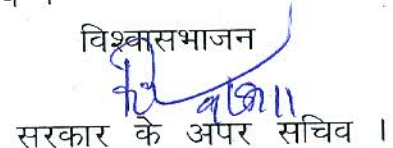 विश्वासभाजन
सरकार के अपर सचिव ।